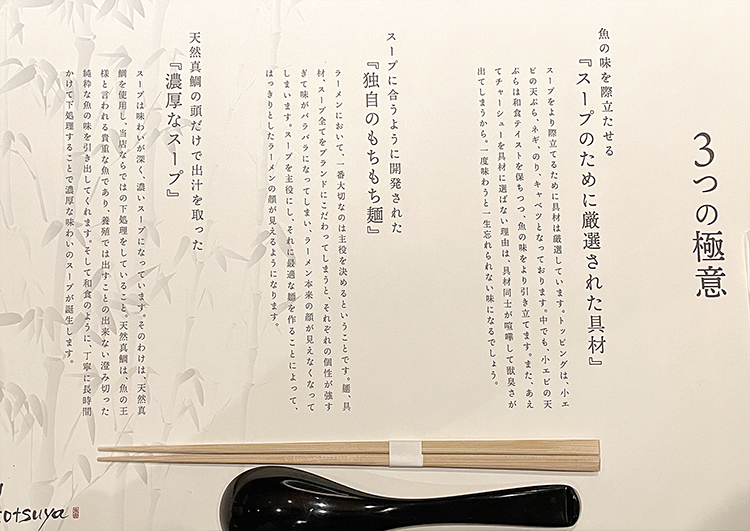 3つの極意
魚の味を際立たせる
『スープのために厳選された具材』
スープをより際立てるために具材は厳選しています。トッピングは、小エ
ビの天ぷら、ネギ、のり、キャベツとなっております。中でも、小エビの天
ぷらは和食テイストを保ちつつ、魚の味をより引き立てます。また、あえ
てチャーシューを具材に選ばない理由は、具材同士が喧嘩して獣臭さが
出てしまうから。一度味わうと一生忘れられない味になるでしょう。
スープに合うように開発された
『独自のもちもち麺』
ラーメンにおいて、一番大切なのは主役を決めるということです。麺、具
材、スープ全てをブランドにこだわってしまうと、それぞれの個性が強す
ぎて味がバラバラになってしまい、ラーメン本来の顔が見えなくなって
しまいます。スープを主役にし、それに最適な麺を作ることによって、
はっきりとしたラーメンの顔が見えるようになります。
天然真鯛の頭だけで出汁を取った
『濃厚なスープ』
スープは味わいが深く、濃いスープになっています。そのわけは、天然真
鯛を使用し、当店ならではの下処理をしていること。天然真鯛は、魚の王
様と言われる貴重な魚であり、養殖では出すことの出来ない澄み切った
純粋な魚の味を引き出してくれます。そして和食のように、丁寧に長時間
かけて下処理することで濃厚な味わいのスープが誕生します。
otsuya